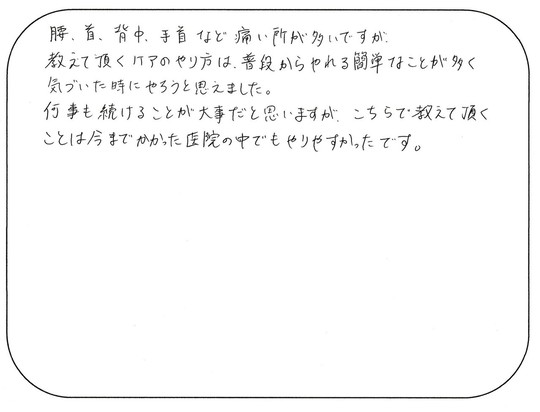 腰、首、背中、手首など痛い所が多いですが、
教えて頂くケアのやり方は、普段からやれる簡単なことが多く
気づいた時にやろうと思えました。
何事も続けることが大事だと思いますが、こちらで教えて頂く
ことは今までかかった医院の中でもやりやすかったです。